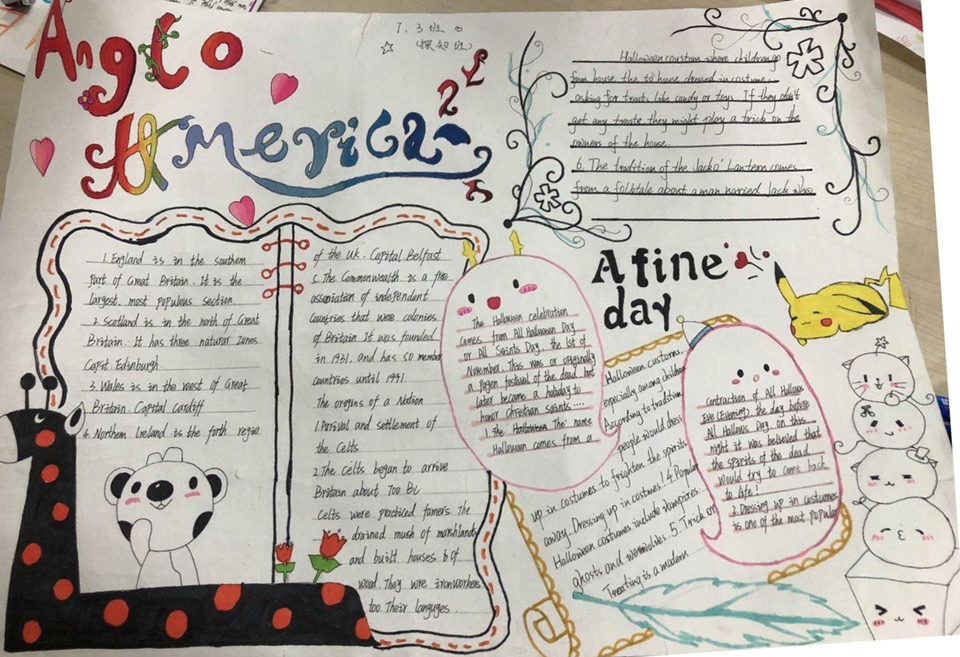 Anglo
America
7.3班
(探知班)
1. England is in the southern
part of Great Britain. It is the
largest, most populous section.
2. Scotland is in the north of Great
Britain. It has three natural zones
Capit Edinburgh
3. Wales is in the west of Great
Britain. Capital Cardiff
4. Northern Ireland is the forth regio
of the UK. Capital Belfast
5. The Commonwealth is a free
association of independent
Countries that were colonies
of Britain It was founded
in 1931. and has 50 member
countries until 1991
The origins of a Nation
1. Parival and settlement of
the Celts
2. The Celts began to arrive
Britain about 700 BC
Celts were practiced famers. The
drained mush of marshlands
and built houses b of
wood. They wre ironworkers
too. Their languges
The Halloween celebration
comes from All Halloween Day
or All Saints Day, the 1st of
November. This was or originally
a pagen festival of the dead, but
later became a holiday to
honor christian saints....
1. The Halloween The name
Halloween comes from a
contraction of All Hallows
Eve (Evening) the day before
All Hallows Day on this
night it was believed that
the spirits of the dead
Would try to come back
to life!
2. Dressing up in costumes
is one of the most popular
Halloween customs,
especially among children
According to tradition
people would dress
up in costumes to frighten the spirits
away. Dressing up in costmes! 4. Popular
Halloween costumes include vampires,
ghosts and werewolves. 5. Trick or
Treating is a modern
Halloween coustom where children go
from house the to house dressed in costume,
asking for treats like candy or toys. If they don't
get any treats, they might play a trick on the
owners of the house.
6. The tradition of the Jack o' Lantern comes
from a folktale about a man narried Jack who
A fine
day